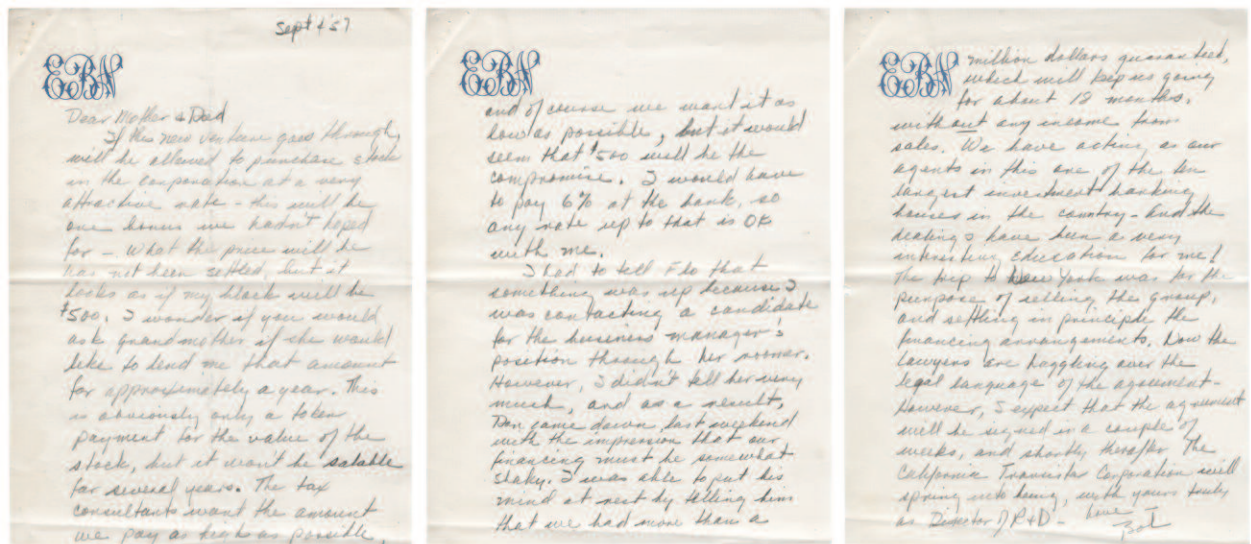 Sept 4 '57
EBN
Dear Mother & Dad
If this new venture goes through,
will be allowed to purchase stock
in the corporation at a very
attractive rate - this will be
one bonus we hadn't hoped
for -. What the price will be
has not been settled, but it
looks as if my block will be
$500. I wonder if you would
ask Grandmother if she would
like to lend me that amount
for approximately a year. This
is obviously only a token
payment for the value of the
stock, but it won't be salable
for several years. The tax
consultants want the amount
we pay as high as possible,
EBN
and of course we want it as
low as possible, but it would
seem that $500 will be the
compromise. I would have
to pay 6% at the bank, so
any rate up to that is OK
with me.
I had to tell Flo that
something was up because I
was contacting a candidate
for the business manager's
position through her roomer.
However, I didn't tell her very
much, and as a result,
Don came down last weekend
with the impression that our
financing must be somewhat
shaky. I was able to put his
mind at rest by telling him
that we had more than a
EBN
million dollars guaranteed,
which will keep us going
for about 18 months,
without any income from
sales. We have acting as our
agents in this one of the ten
largest investment banking
houses in the country - and the
dealings have been a very
interesting education for me!
The trip to New York was for the
purpose of selling the group,
and settling in principle the
financing arrangements. Now the
lawyers are haggling over the
legal language of the agreement -
However, I expect that the agreement
will be signed in a couple of
weeks, and shortly thereafter The
California Transistor Corporation will
spring into being, with yours truly
as Director of R & D - Love -
Bob